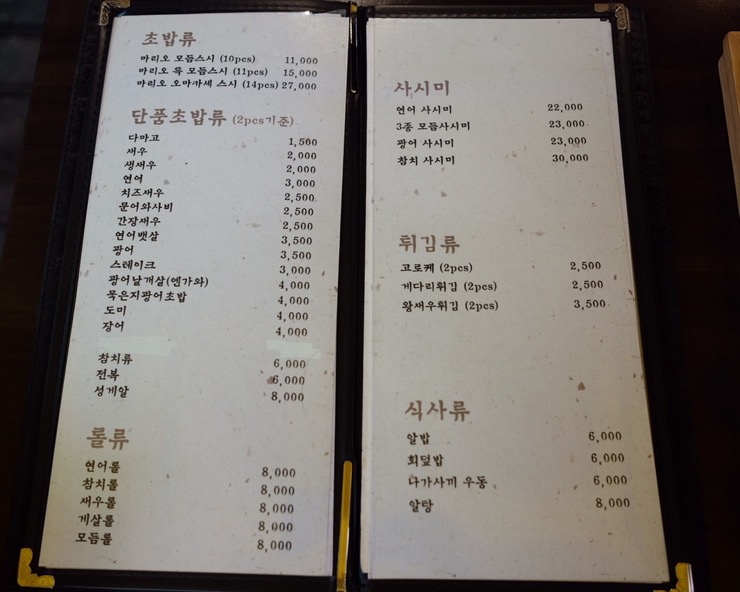 초밥류
마리오 모듬스시 (10pcs) 11,000
마리오 특 모듬스시 (11pcs) 15,000
마리오 오마카세 스시 (14pcs) 27,000
단품초밥류 (2pcs기준)
다마고 1,500
새우 2,000
생새우 2,000
연어 3,000
치즈새우 2,500
문어와사비 2,500
간장새우 2,500
연어뱃살 3,500
광어 3,500
스레이크 3,000
광어날개살(엔가와) 4,000
묵은지광어초밥 4,000
도미 4,000
장어 4,000
참치류 6,000
전복 6,000
성게알 8,000
롤류
연어롤 8,000
참치롤 8,000
새우롤 8,000
게살롤 8,000
모듬롤 8,000
사시미
연어 사시미 22,000
3종 모듬사시미 23,000
광어 사시미 23,000
참치 사시미 30,000
튀김류
고로케 (2pcs) 2,500
게다리튀김 (2pcs) 2,500
왕새우튀김 (2pcs) 3,500
식사류
알밥 6,000
회덮밥 6,000
나가사끼 우동 6,000
알탕 8,000